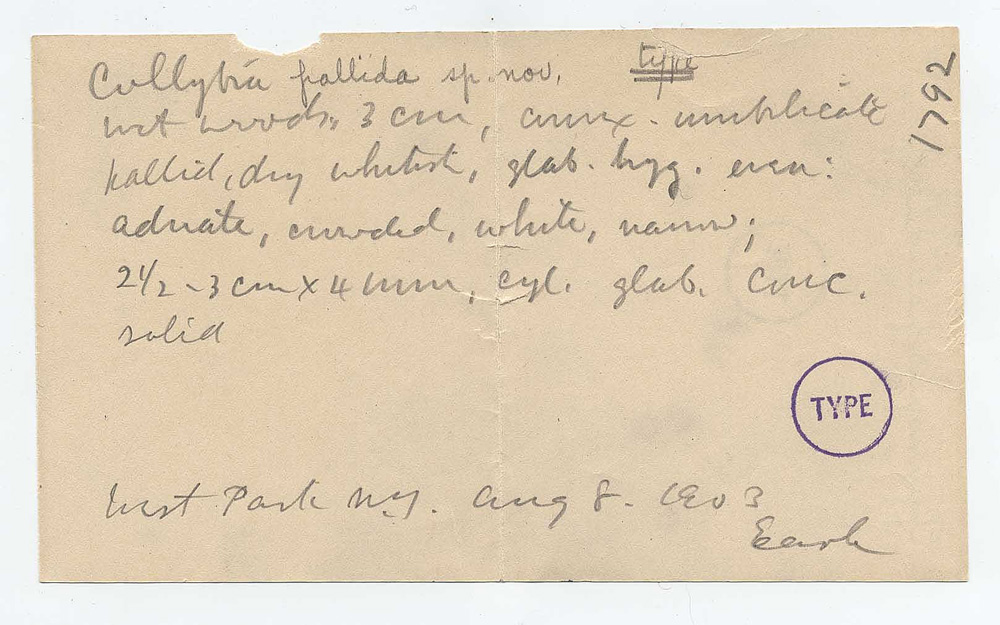 Collybia pallida sp. nov. type
wet woods, 3 cm, convex - umbilicate
pallid, dry whitish, glab. hyg. even:
adnate, crowded, white, narrow;
2 1/2 - 3 cm x 4 mm, cyl. glab. conc.
solid
TYPE
West Park N.Y. Aug 8. 1903
Earle
1792